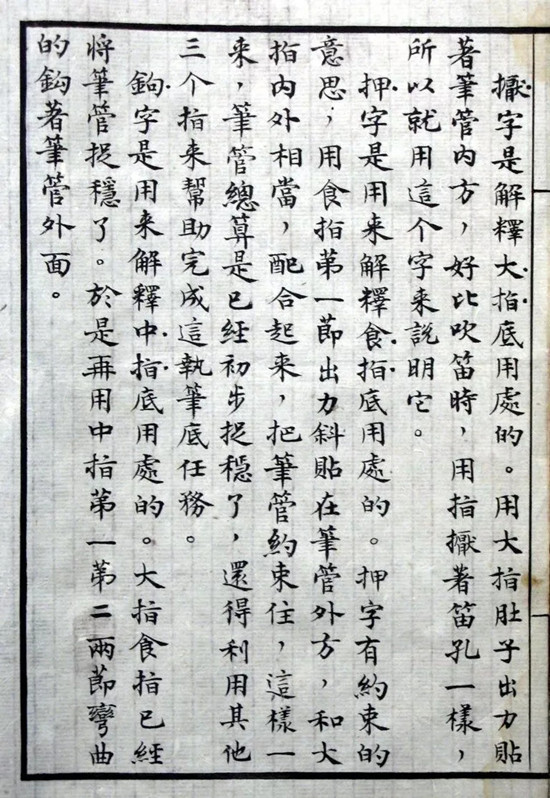 擫字是解釋大指底用處的。用大指肚子出力貼
著筆管内方，好比吹笛時，用指擫著笛孔一樣，
所以就用這个字来説明它。
押字是用来解釋食指底用處的。押字有約束的
意思，用食指第一節出力斜貼在筆管外方，和大
指内外相當，配合起来，把筆管約束住，這樣一
来，筆管總算是已經初步捉穩了，還得利用其他
三个指来幫助完成這執筆底任務。
鉤字是用来解釋中指底用處的。大指食指已經
將筆管捉穩了。於是再用中指第一第二兩節彎曲
的鈎著筆管外面。